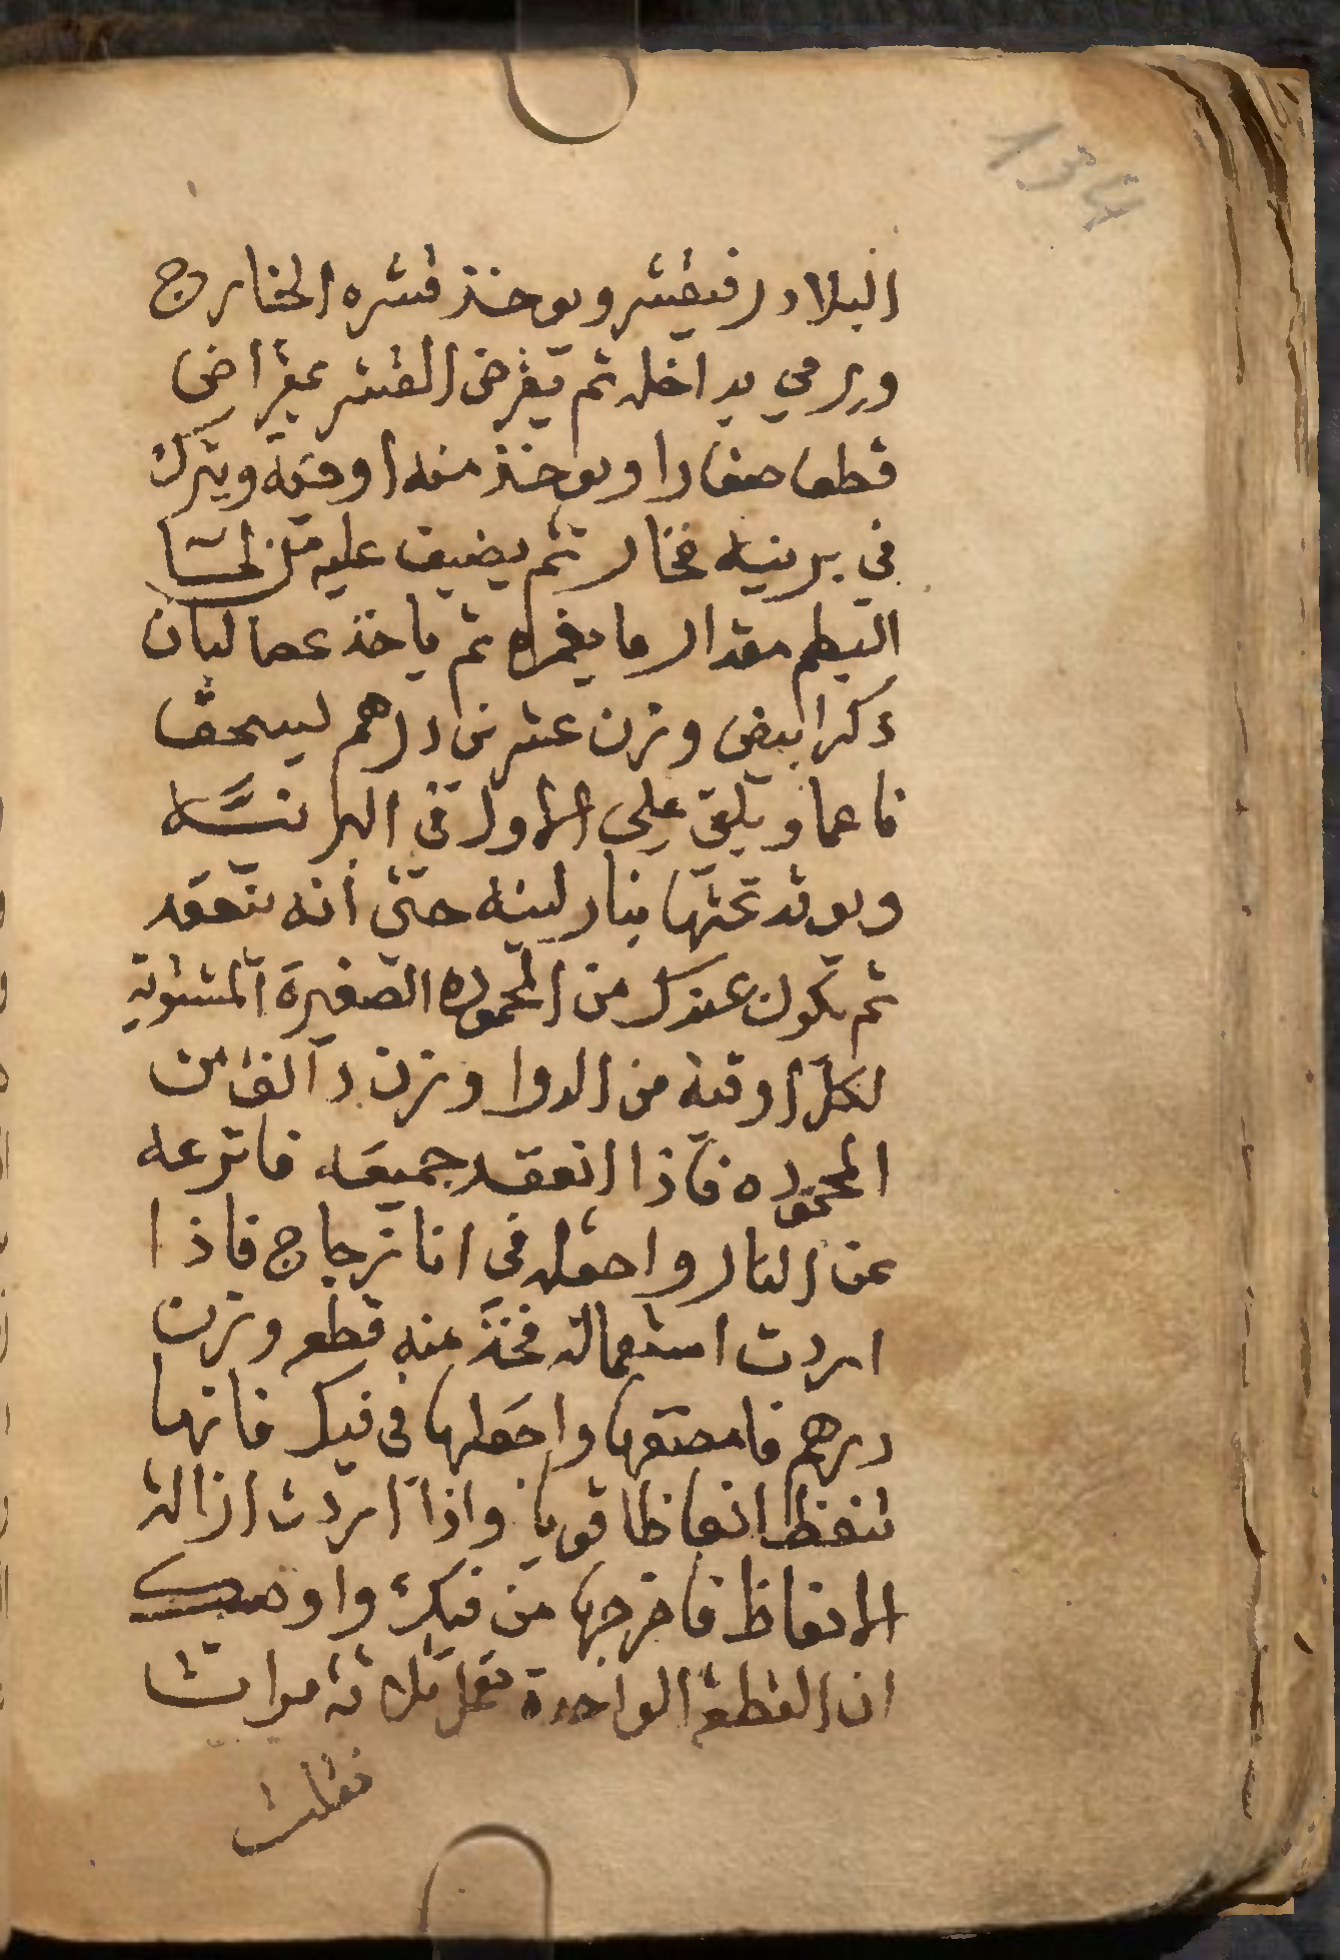 134
البلادر فيقشر ويوخذ قشره الخارج
ويرمي بداخله ثم يقرض القشر بمقراض
قطعا صغارا ويوخذ منه اوقية ويترك
في برنيه فخار ثم يضيف عليه من
البطم مقدار ما يغمره ثم ياخذ عصا لبان
ذكر ابيض وزن عشرين درهم ليسحق
ناعما ويلقى على الاول في البرنيه
ويوقد تحتها بنار لينه حتى أنه ينعقد
ثم يكون عندك من المحموده الصغيرة المشويه
لكل اوقية من الدوا وزن دانق من
المحموده فاذا انعقد جميعه فانزعه
عن النار واجعله في انا زجاج فاذا
اردت استعماله فخذ منه قطعه وزن
درهم فامضغها واجعلها في فيك فانها
تنعظ انعاظا قويا واذا اردت ازالة
الانعاظ فاخرجها من فيك واوصيك
ان القطعة الواحدة تعمل ثلاثة مرات